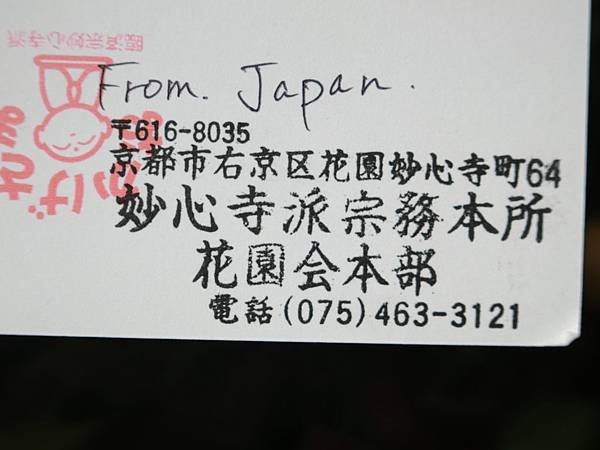 臨済宗妙心寺派
From. Japan.
〒616-8035
京都市右京区花園妙心寺町64
妙心寺派宗務本所
花園会本部
電話(075)463-3121